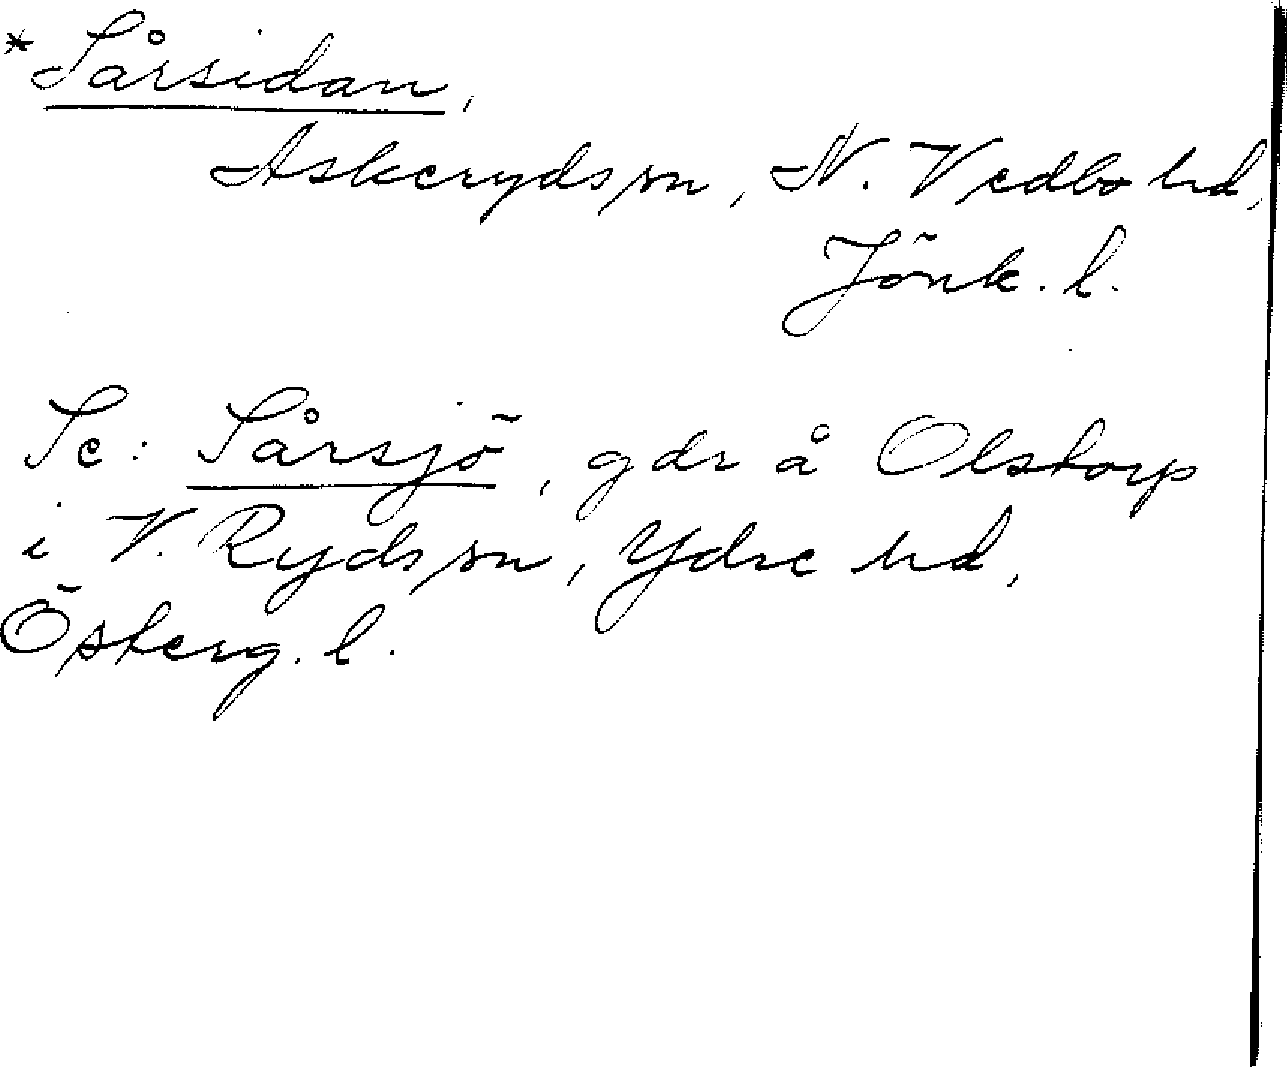 *Sårsidan,
Askeryds sn, N. Vedbo hd,
Jönk. l.
Se: Sårsjö, gdr å Olstorp
i V. Ryds sn, Ydre hd,
Österg. l.